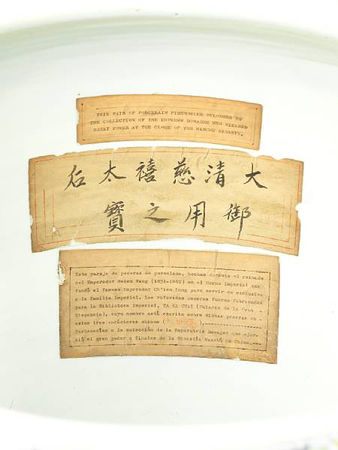 THIS PAIR OF PORCELAIN FISHBOWLS BELONGED TO
THE COLLECTION OF THE EMPRESS DOWAGER WHO WIELDED
GREAT POWER AT THE CLOSE OF THE MANCHU DYNASTY.
大清慈禧太后
御用之寶
Este pareja de peceras de porcelana, hechas durante el reinado
del Emperador en el Horno Imperial que
fundó el famoso emperador Ch'ien Lung para servir en exclusiva
a la familia Imperial. Las referidas peceras fueron fabricadas
para la Biblioteca Imperial, Ta Ya Chai (Palacio de la
), cuyo nombre está escrito sobre dichas peceras en
estos tres carácteres chinos
Pertenecían a la colección de la Emperatriz Dowager que
ció el gran poder a finales de la Dinastía Manchú de China.